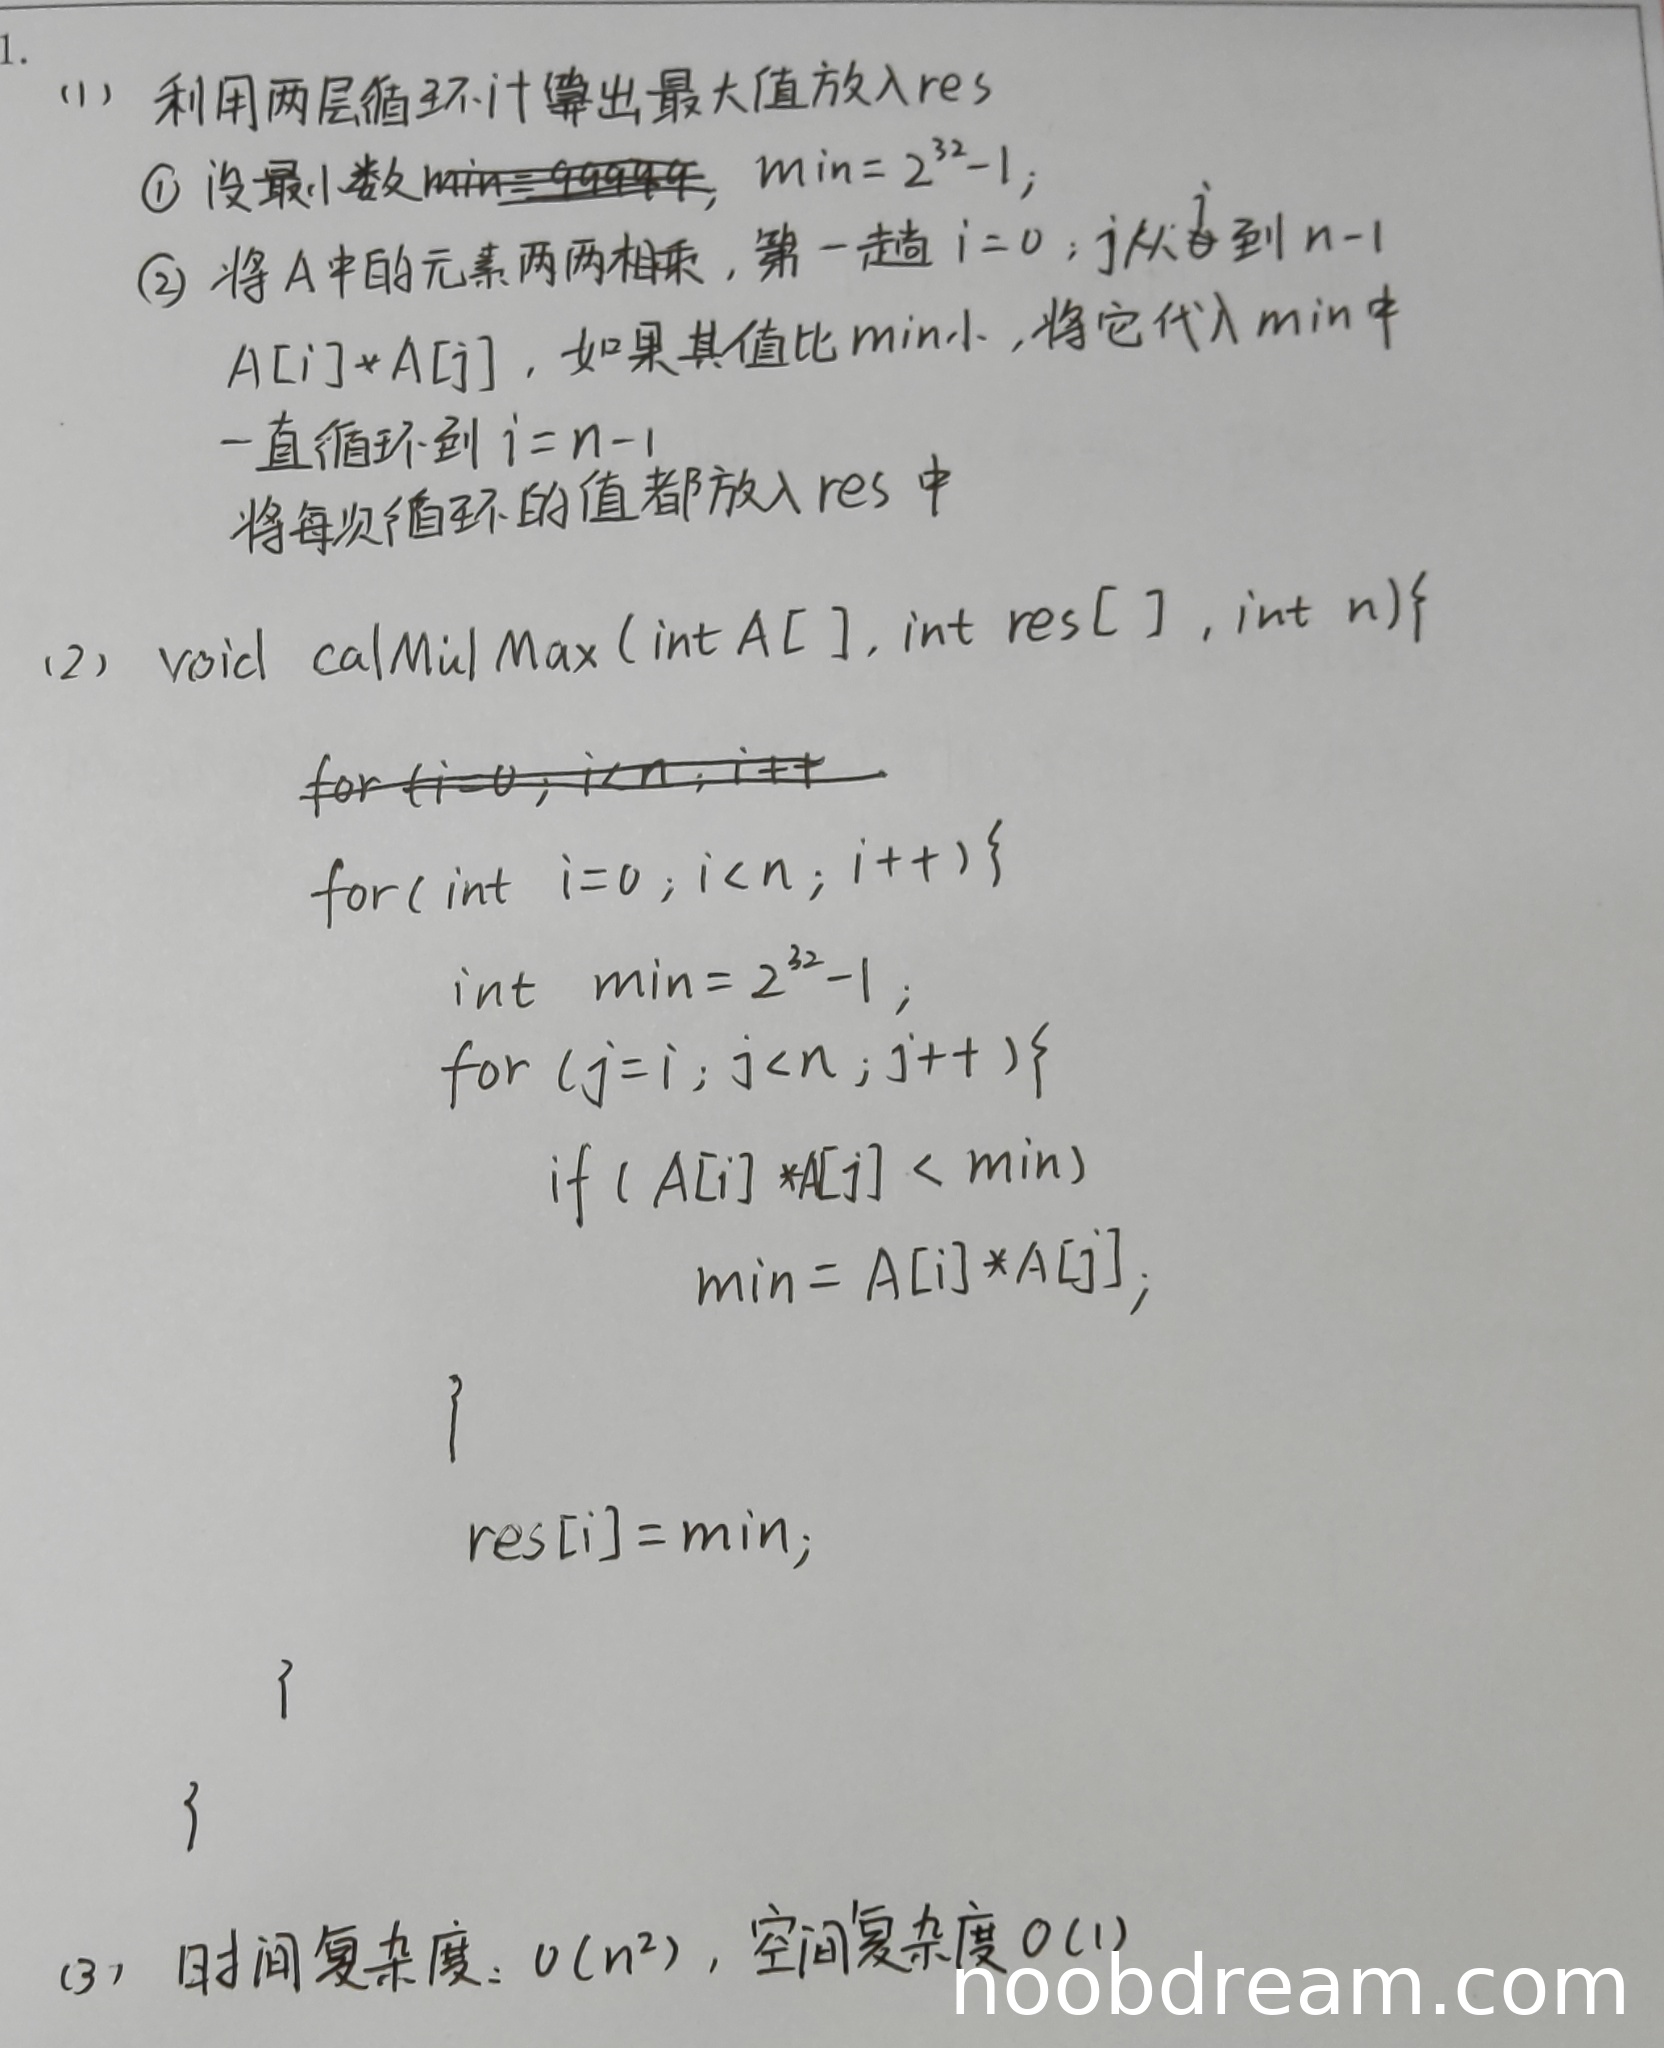 1.
(1) 利用两层循环计算出最大值放入res
① 设最小数min=99999, min=2³²-1;
② 将A中的元素两两相乘,第一趟 i=0;j从j到n-1
A[i]*A[j],如果其值比min小,将它代入min中
一直循环到 i=n-1
将每次循环的值都放入res中
(2) void calMulMax(int A[], int res[], int n){
for (i=0; i<n; i++
for(int i=0; i<n; i++){
int min=2³²-1;
for (j=i; j<n; j++){
if(A[i]*A[j]<min)
min=A[i]*A[j];
}
res[i]=min;
}
}
(3) 时间复杂度:O(n²),空间复杂度O(1)
noobdream.com